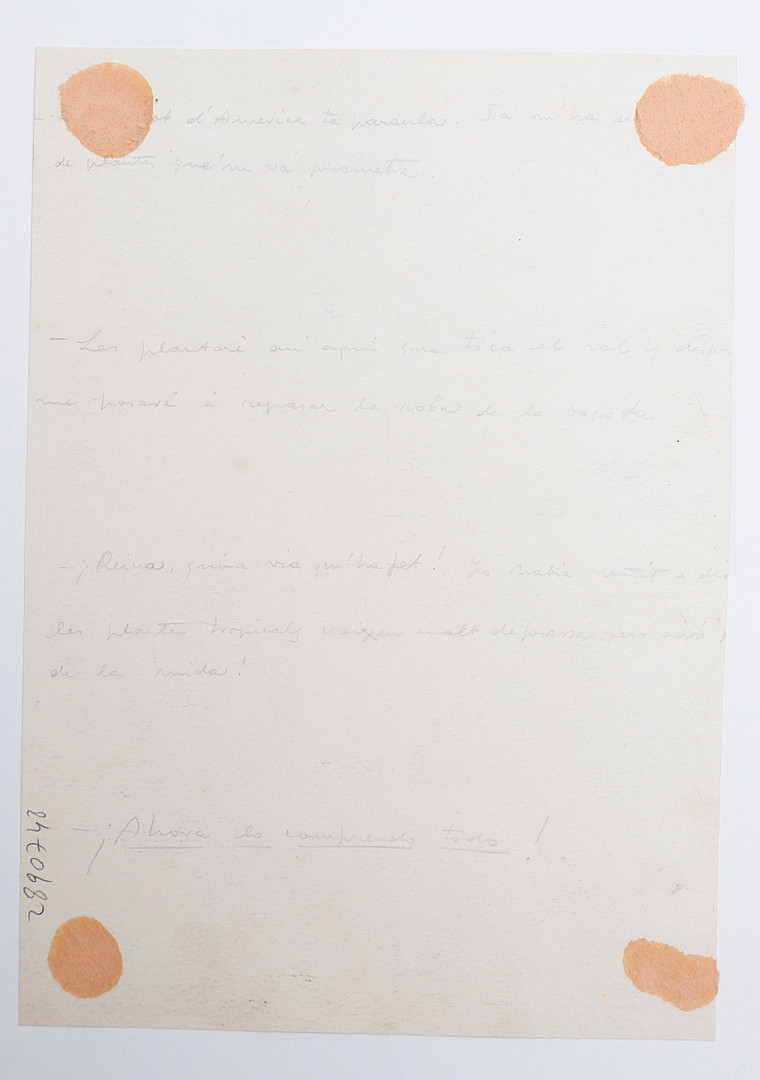 d'America té paraula. Ja m'ha
de plantes que'm vá prometre.
- Les plantaré aquí que toca el sol y
me posaré á repasar la roba de la bogada
- ¡Reina, quina via qu'ha fet! Jo havia sentit á
les plantes tropicals creixen molt depressa, pero aixó
de la mida!
- ¡Ahora lo comprendo todo!